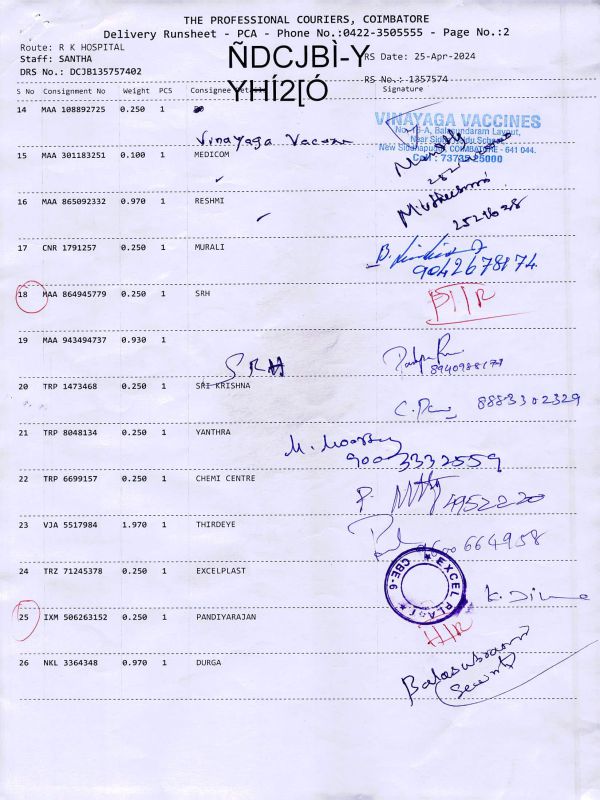 THE PROFESSIONAL COURIERS, COIMBATORE
Delivery Runsheet - PCA - Phone No.:0422-3505555 - Page No.:2
Route: R K HOSPITAL
Staff: SANTHA RS Date: 25-Apr-2024
DRS No.: DCJB135757402 RS No.: 1357574
ÑDCJBÌ-Y
YHÍ2[Ó
S No Consignment No Weight PCS Consignee Details Signature
14 MAA 108892725 0.250 1
Vinayaga
VINAYAGA VACCINES
Near Siddhapudur School,
New Siddhapudur, COIMBATORE - 641 044.
Cell : 73735 25000
15 MAA 301183251 0.100 1 MEDICOM
16 MAA 865092332 0.970 1 RESHMI
17 CNR 1791257 0.250 1 MURALI
9042678174
18 MAA 864945779 0.250 1 SRH
19 MAA 943494737 0.930 1
SRH
20 TRP 1473468 0.250 1 SRI KRISHNA
8883302329
21 TRP 8048134 0.250 1 YANTHRA
9003332559
22 TRP 6699157 0.250 1 CHEMI CENTRE
23 VJA 5517984 1.970 1 THIRDEYE
664958
24 TRZ 71245378 0.250 1 EXCELPLAST
EXCEL PLAST
CBE-6
25 IXM 506263152 0.250 1 PANDIYARAJAN
26 NKL 3364348 0.970 1 DURGA